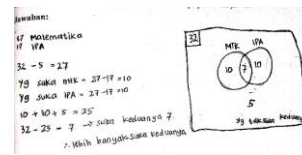 Jawaban:
17 Matematika
17 IPA
32 - 5 = 27
Yg suka MTK = 27-17 = 10
Yg suka IPA = 27-17 = 10
10 + 10 + 5 = 25
32 - 25 = 7 → suka keduanya 7
∴ lebih banyak suka keduanya
32
MTK IPA
10 7 10
5
yg tdk suka keduanya